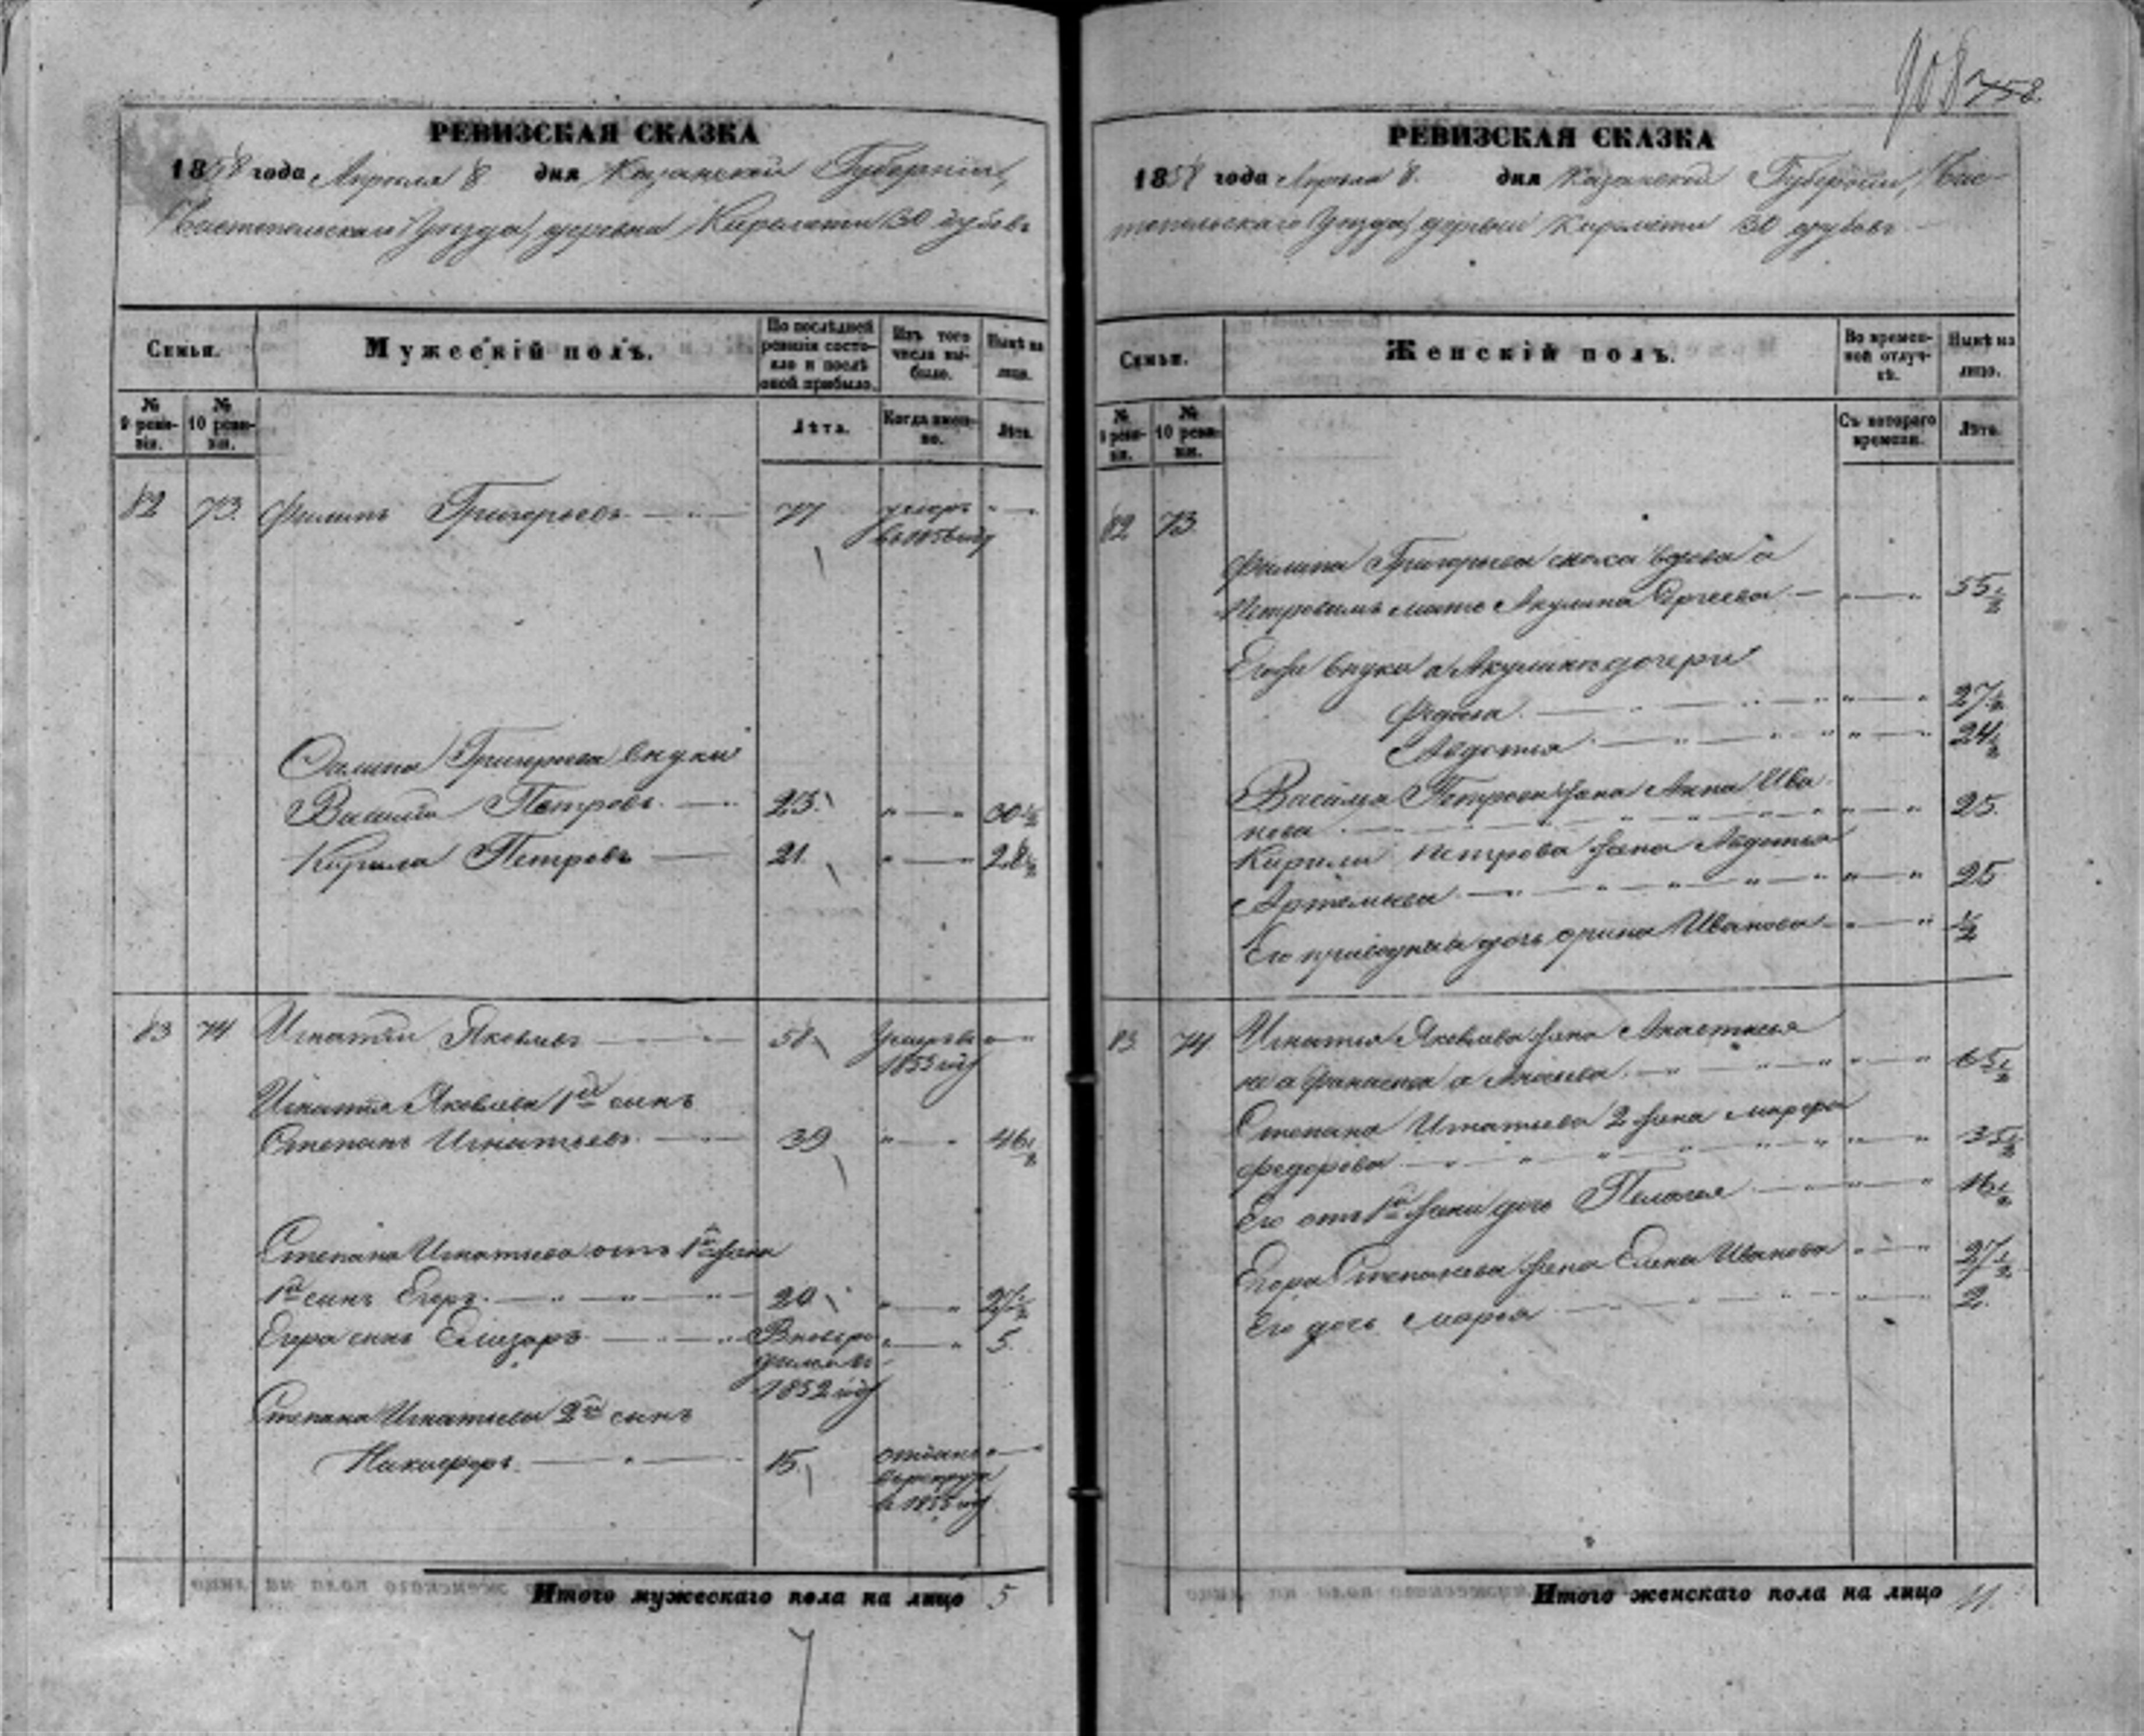 908 758.
РЕВИЗСКАЯ СКАЗКА
1858 года Апреля 8 дня Казанской Губернiи,
Чистопольскаго Уезда, деревни Киремети 30 дубовъ
Семьи.
Мужескiй полъ.
По послѣдней ревизiи состояло и послѣ оной прибыло.
Изъ того числа выбыло.
Нынѣ на лицо.
№ 9 ревизiи.
№ 10 ревизiи.
Лѣта.
Когда именно.
Лѣта.
82 73. Филипъ Григорьевъ 77 умеръ
въ 1856 году
Филипа Григорьева внуки
Василiй Петровъ 23. 30 1/2
Кирила Петровъ 21. 28 1/2
83 74 Игнатiй Яковлевъ 58 Умеръ въ
1853 году
Игнатiя Яковлева 1й сынъ
Степанъ Игнатьевъ 39 46 1/2
Степана Игнатьева отъ 1й жены
1й сынъ Егоръ 20 27 1/2
Егора сынъ Елизаръ Вновь ро- 5.
1852 году
Степана Игнатьева 2й сынъ
Никифоръ 15. отданъ
въ рекруты
в 1855 году
Итого мужескаго пола на лицо 5
РЕВИЗСКАЯ СКАЗКА
1858 года Апреля 8. дня Казанской Губернiи, Чис-
топольскаго Уезда, деревни Киремети 30 дубовъ
Семьи.
Женскiй полъ.
Во временной отлучкѣ.
Нынѣ на лицо.
№ 9 ревизiи.
№ 10 ревизiи.
Съ котораго времени.
Лѣта.
82 73.
Филипа Григорьева сноха вдова а
Петровымъ мать Акулина Сергеева 55 1/2
Его же внуки а Акулины дочери
Федосья 27 1/2
Авдотья 24 1/2
Василья Петрова жена Анна Ива-
нова 25.
Кирилы Петрова жена Авдотья
Артемьева 25
Его приводная дочь Ирина Иванова 1/2
83 74. Игнатья Яковлева жена Анастасья
не Афанасева а 65 1/2
Степана Игнатьева 2 жена Марфа
Федорова 35 1/2
Его отъ 1й жены дочь Пелагея 16 1/2
Егора Степанова жена Елена Иванова 27 1/2
Его дочь Марья 2.
Итого женскаго пола на лицо 11.